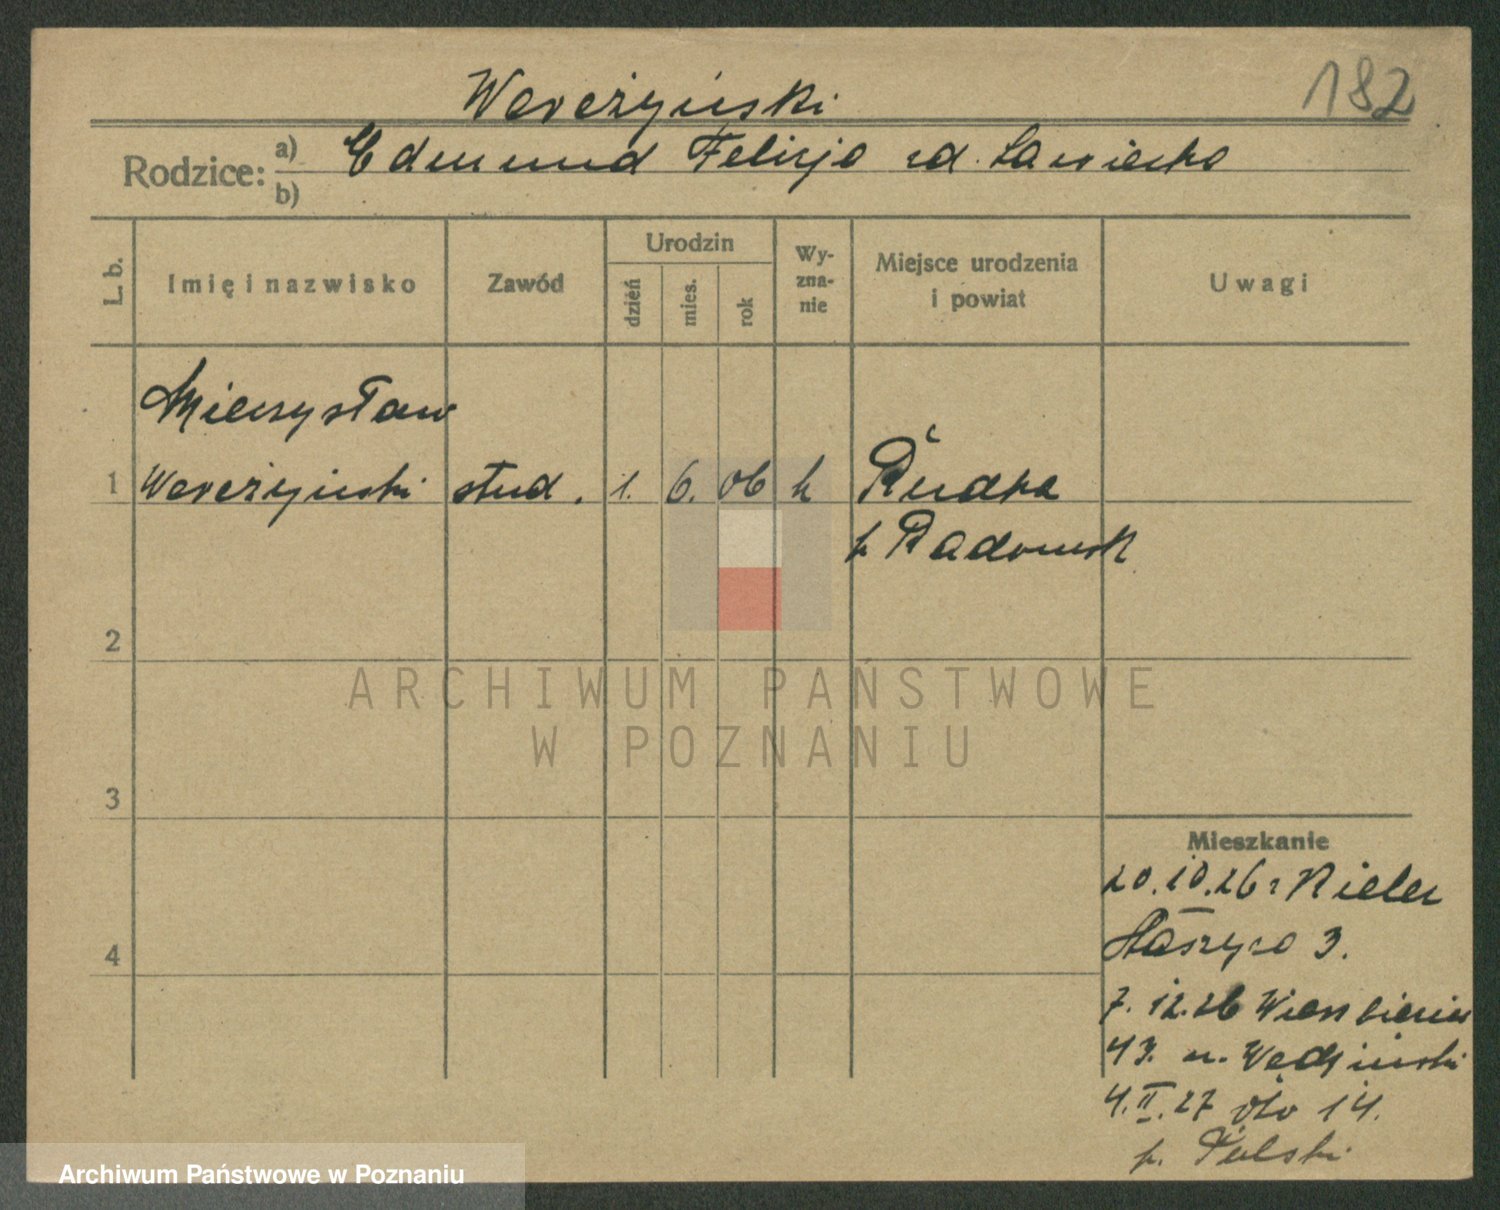 Wereżyński
182
Rodzice:
a) Edmund Felicja zd. Sawicka
b)
L. b.
Imię i nazwisko
Zawód
Urodzin
dzień
mies.
rok
Wy-
zna-
nie
Miejsce urodzenia
i powiat
Uwagi
Mieczysław
1 Wereżyński stud. 1. 6. 06 k Rudka
p Radomsk
2
ARCHIWUM PAŃSTWOWE
W POZNANIU
3
Mieszkanie
20.10.26 z Kielc
Staszyca 3.
4
7.12.26
43. u.
4.II.27 14.
p.
Archiwum Państwowe w Poznaniu